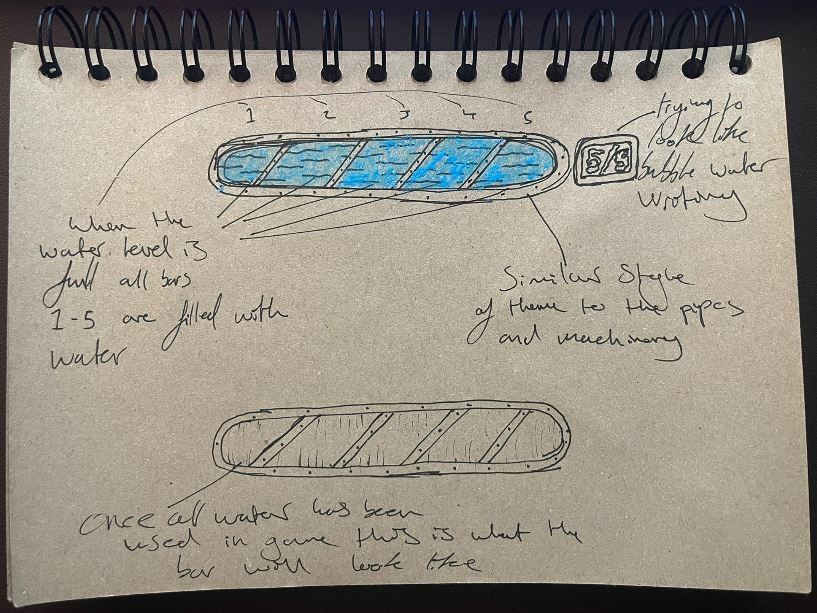 1 2 3 4 5
5/5
trying to
look like
bubble water
Writing
When the
water level is
full all bars
1-5 are filled with
water
Similar Style
of theme to the pipes
and machinery
Once all water has been
used in game this is what the
bar will look like